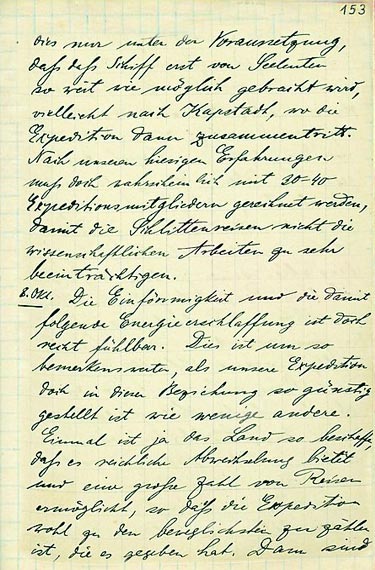 153
dies nur unter der Voraussetzung,
daß das Schiff erst von Seeleuten
so weit wie möglich gebracht wird,
vielleicht nach Kapstadt, wo die
Expedition dann zusammentritt.
Nach unseren hiesigen Erfahrungen
muß doch wahrscheinlich mit 30-40
Expeditionsmitgliedern gerechnet werden,
damit die Schlittenreisen nicht die
wissenschaftlichen Arbeiten zu sehr
beeinträchtigen.
8. Okt. Die Einförmigkeit und die damit
folgende Energieerschlaffung ist doch
recht fühlbar. Dies ist um so
bemerkenswerter, als unsere Expedition
doch in dieser Beziehung so günstig
gestellt ist wie wenige andere.
Einmal ist ja das Land so beschaffen,
daß es reichliche Abwechselung bietet
und eine große Zahl von Reisen
ermöglicht, so daß die Expedition
wohl zu den beweglichsten zu zählen
ist, die es gegeben hat. Dann sind